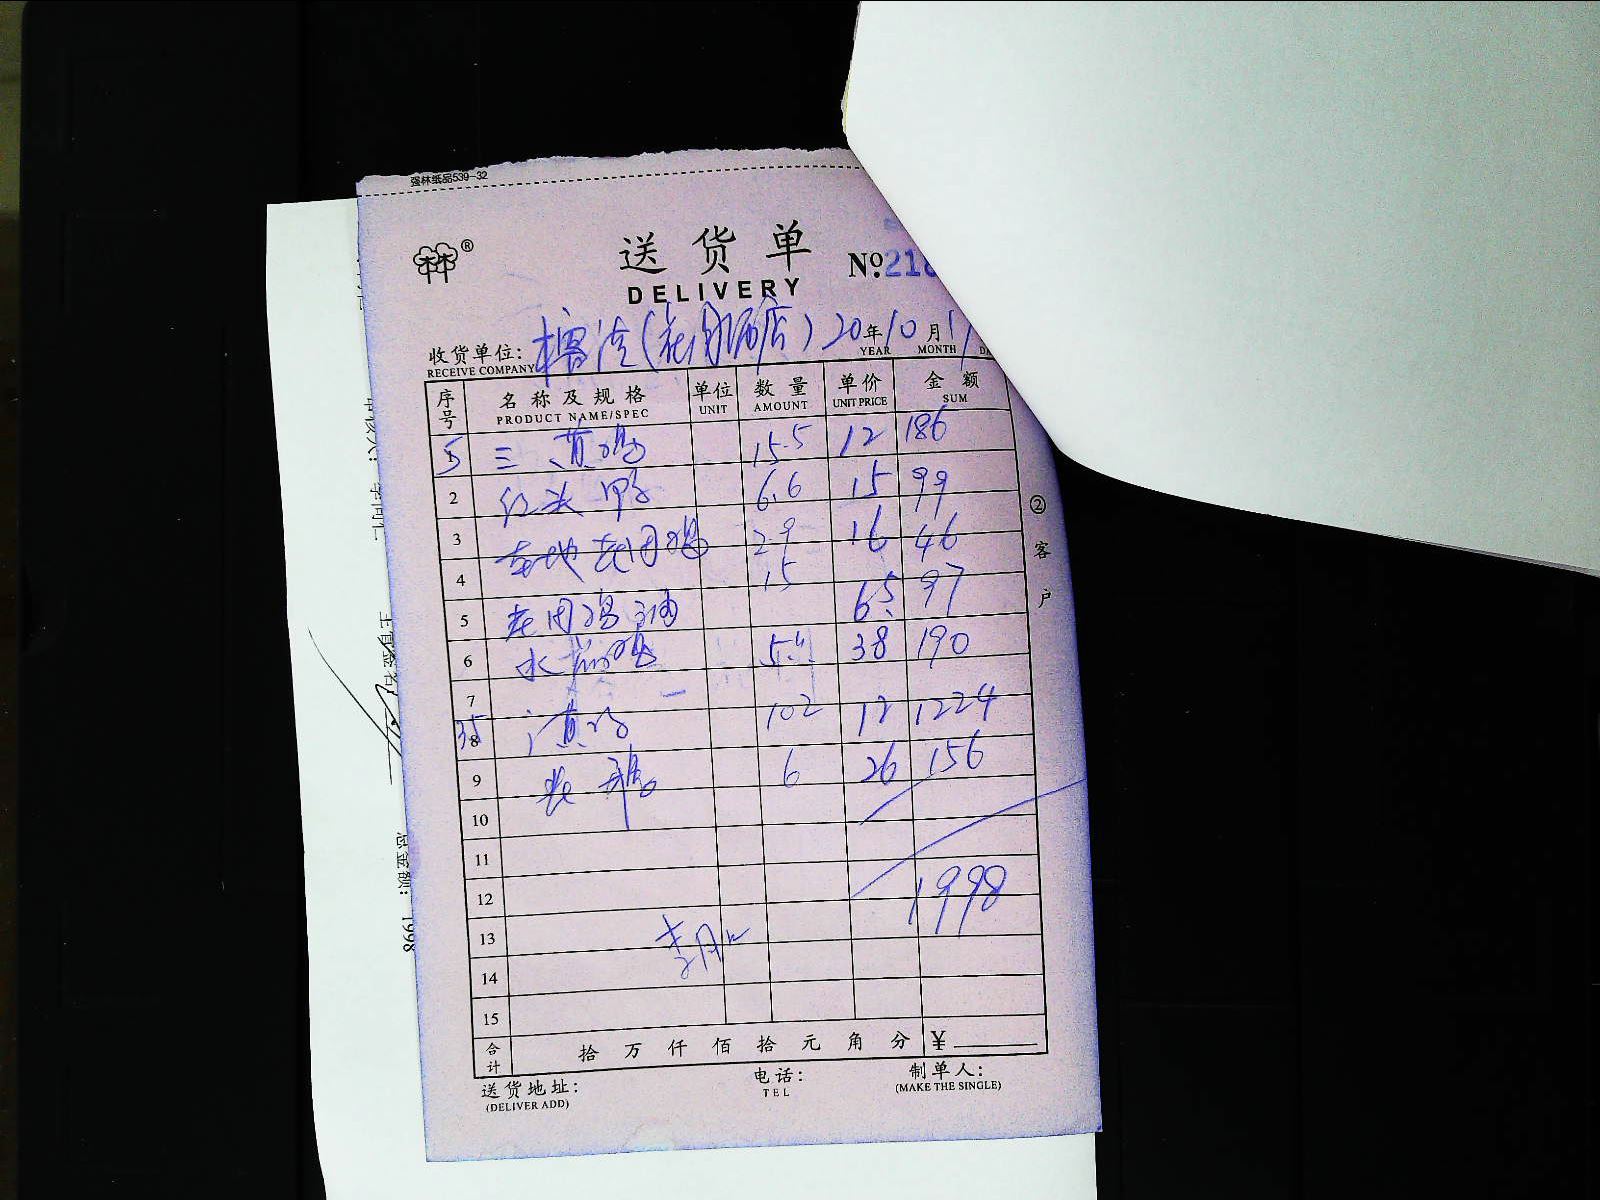 强林纸品539-32
®
送货单
DELIVERY
№218
收货单位: (花园酒店) 20年10月1
RECEIVE COMPANY YEAR MONTH
序号 名称及规格 单位 数量 单价 金额
PRODUCT NAME/SPEC UNIT AMOUNT UNIT PRICE SUM
1 5 三黄鸡 15.5 12 186
2 红头鸭 6.6 15 99
3 本地花田鸡 2.9 16 46
4 15
5 花田鸡油 65 97
6 水 鸡 5 38 190
7
8 35 黄鸡 102 12 1224
9 6 26 156
10
11
12 1998
13 李
14
15
合计 拾万仟佰拾元角分 ¥
送货地址: 电话: 制单人:
(DELIVER ADD) TEL (MAKE THE SINGLE)
②客户
总金额: 1998